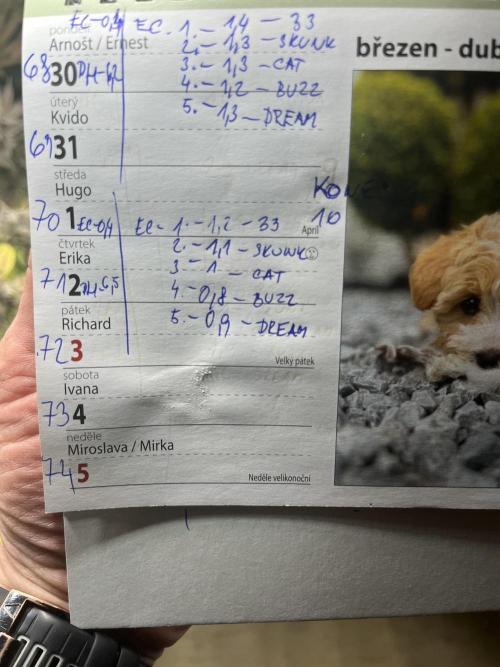 EC-0,4 EC. 1. - 1,4 - 33
pondělí
Arnošt / Ernest 2. - 1,3 - SKUNK
březen - dub
68 30 PH-6,2 3. - 1,3 - CAT
4. - 1,2 - BUZZ
úterý
Kvido 5. - 1,3 - DREAM
69 31
středa
Hugo
KONEC
70 1 EC-0,4 EC- 1. - 1,2 - 33 April 10
čtvrtek
Erika 2. - 1,1 - SKUNK
3 - 1 - CAT
71 2 PH-6,5 4. - 0,8 - BUZZ
pátek
Richard 5. - 0,9 - DREAM
72 3 Velký pátek
sobota
Ivana
73 4
neděle
Miroslava / Mirka
74 5 Neděle velikonoční